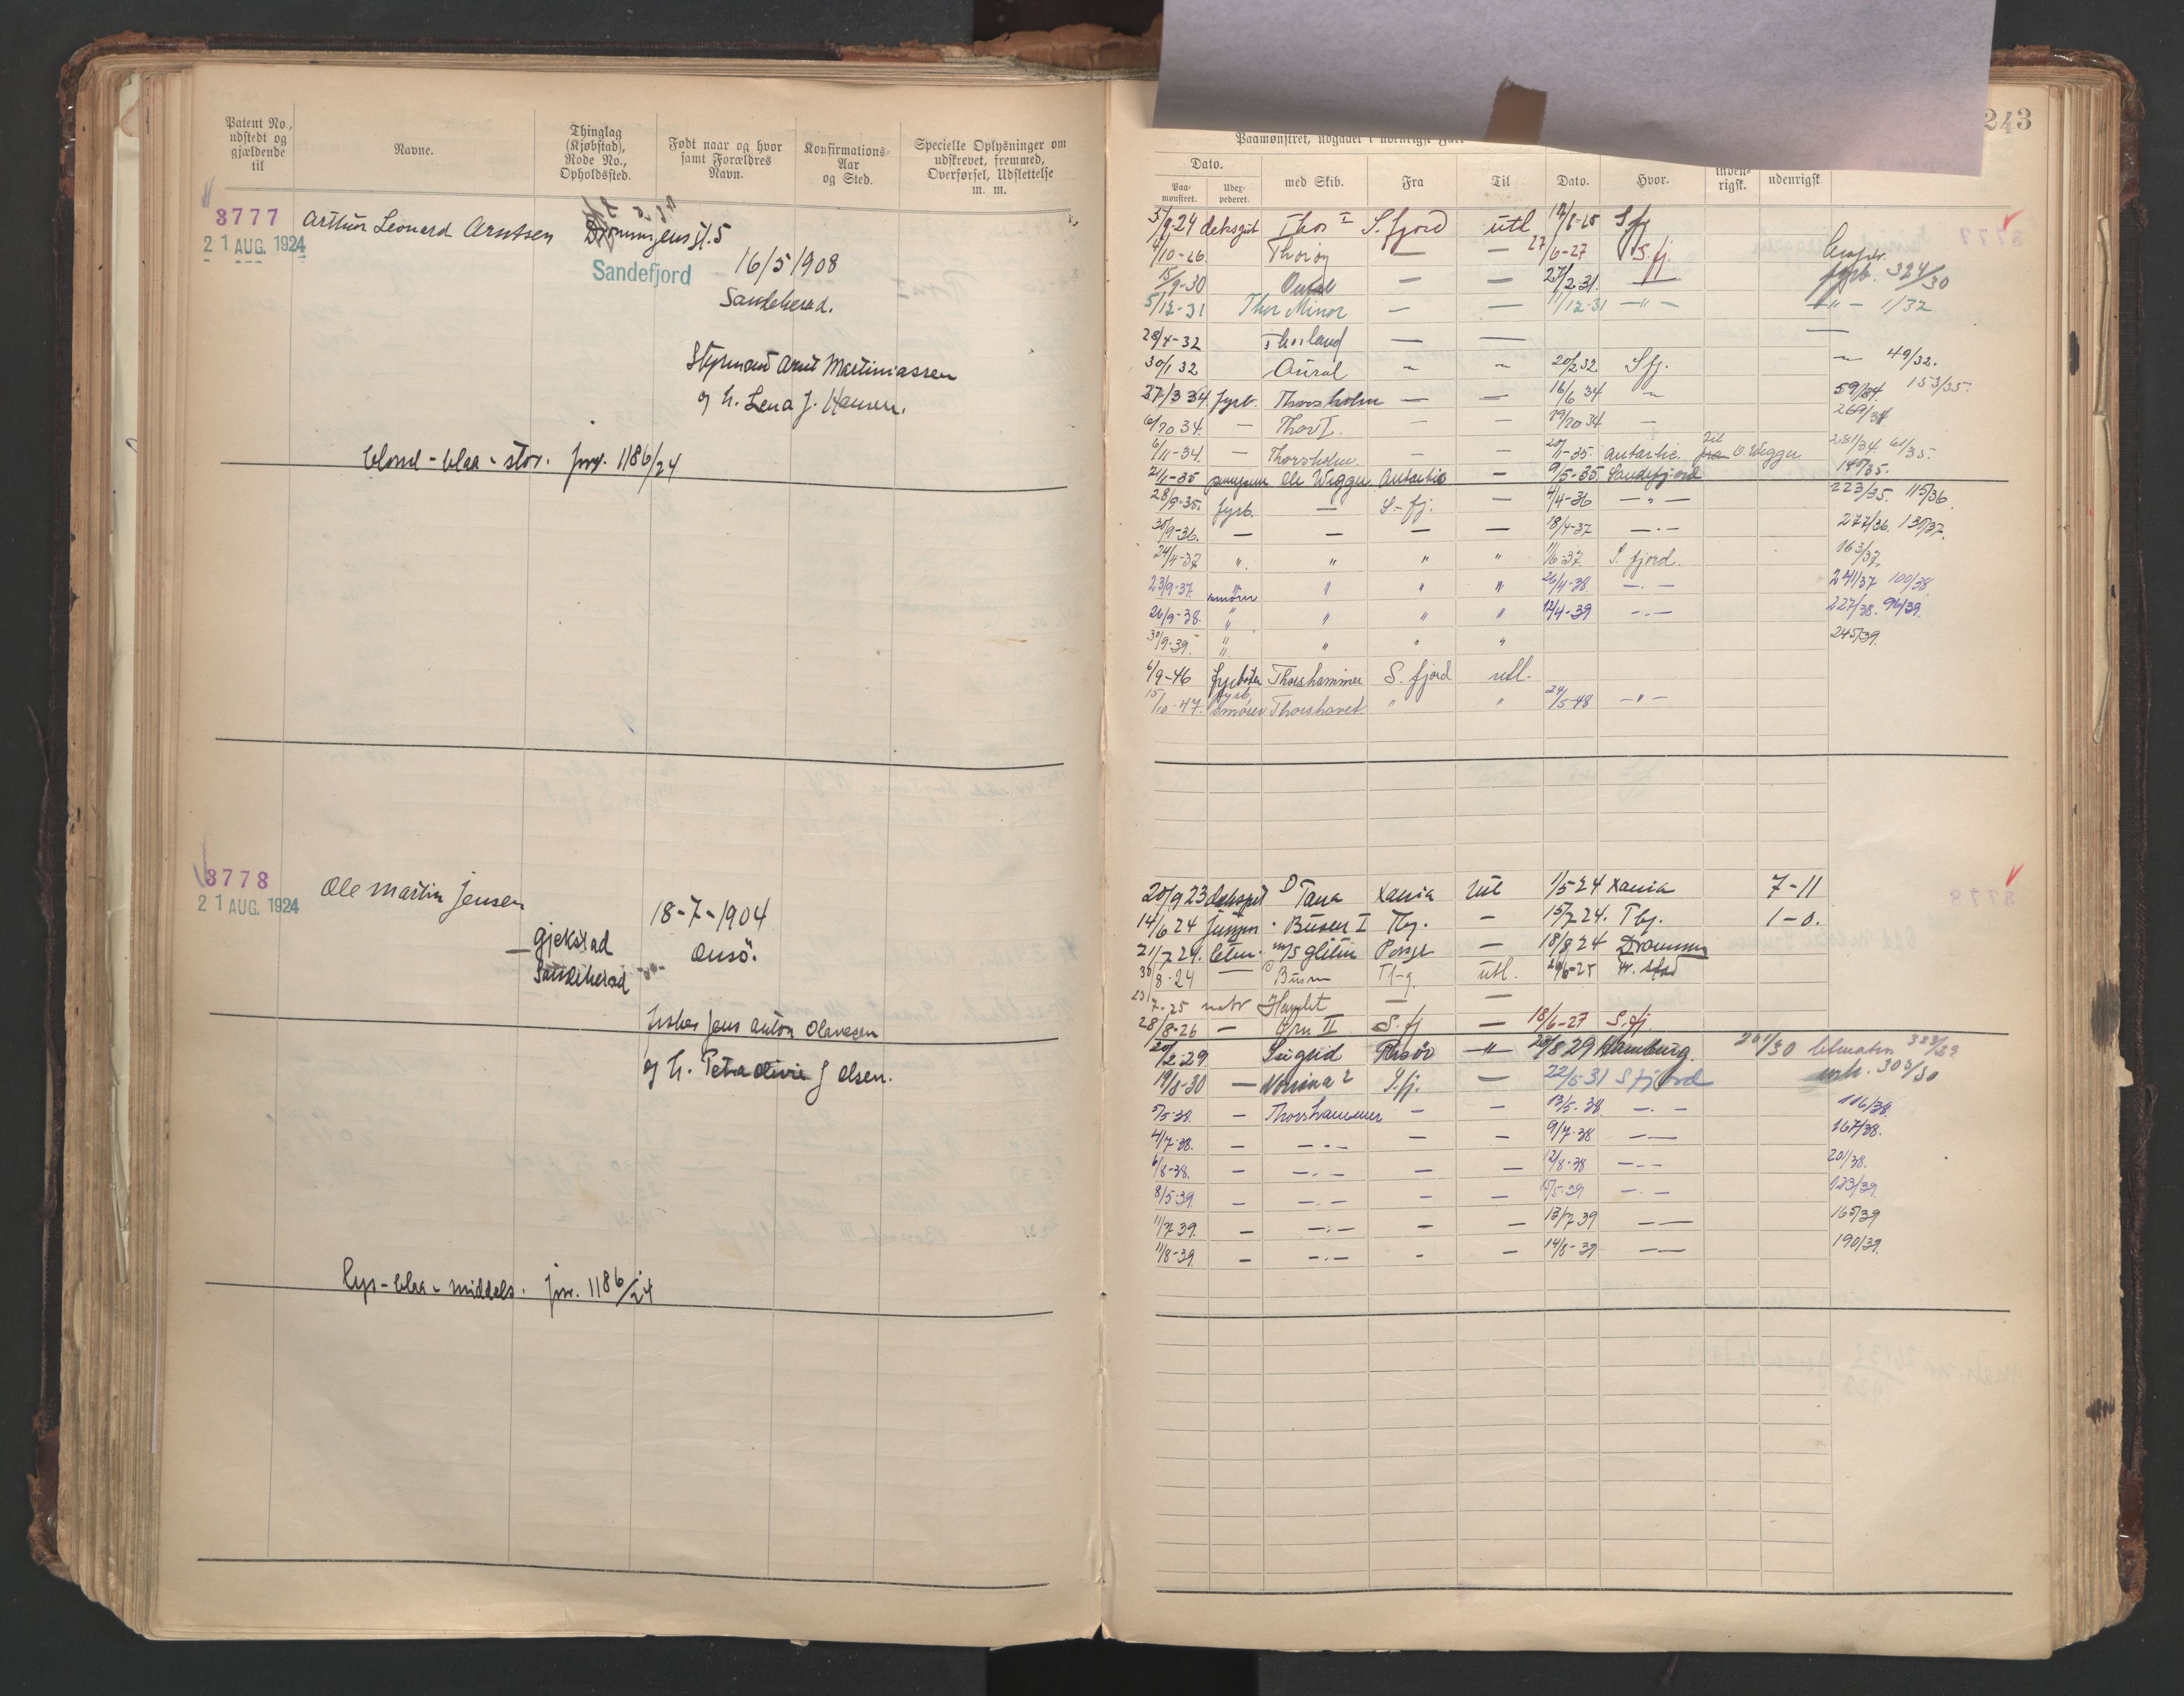 Patent No., udstedt og gjældende til
Navne.
Thinglag (Kjøbstad), Rode No., Opholdssted.
Født naar og hvor samt Forældres Navn.
Konfirmations-Aar og Sted.
Specielle Oplysninger om udskrevet, fremmed, Overførsel, Udslettelse m. m.
3777
21 AUG. 1924
Arthur Leonard Arntsen
Dronningens gt. 5
Sandefjord
16/5 1908
Sandeherad.
Styrmand Arnt Martiniassen
og h. Lena J. Hansen.
blond - blaa - stor. jnr. 1186/24
3778
21 AUG. 1924
Ole Martin Jensen
Gjekstad
Sandeherad
18-7-1904
Onsö.
fisker Jens Anton Olavesen
og h. Petra Olivie J Olsen.
lys - blaa - middels. jnr. 1186/24
243
Paamønstret, udgaaet i udenrigsk Fart
Dato.
Paa-mønstret.
Udex-pederet.
med Skib.
Fra
Til
Dato.
Hvor.
inden-rigsk.
udenrigsk
5/9-24 deksgut Thor I S. fjord utl 12/6-25 S fj
/10-26 Thorøy — — 27/6-27 S. fj.
15/9-30 Aural — — 27/2-31. — fyrb. 324/30
5/12-31 Thor Minor — — 11/12-31 —"— —"— 1/32
28/4-32 Thorland — — —
30/1 32 Aural 20/2 32 S fj. 49/32.
27/3 34. fyrb. Thorsholm — — 16/6 34 59/34. 153/35.
6/10 34. — Thor I. — — 19/10 34 — 269/34
6/11-34. — Thorsholm. — — 20/1-35. Antartic. til O. Wegger 281/34 61/35.
21/1-35 pumpman Ole Wegger Antartic — 9/5-35 Sandefjord 140/35.
28/9-35. fyrb. — S.-fj. — 4/4-36 —"— 223/35. 115/36
30/9-36. — — — — 18/4-37 —.— 277/36. 130/37.
24/4-37 " " " " 11/6-37. S. fjord. 163/37.
23/9-37. smörer " " " 26/4-38. —.— 241/37 100/38
26/9-38. " " " " 12/4-39 —.— 227/38. 96/39.
30/9-39. " " " " 245/39.
6/9-46 fyrböter Thorshammer S. fjord utl.
15/10-47. fyrb. smører Thorshavet " " 24/5-48 —"—
20/9 23 deksgut D Tana Xania Utl 1/5 24 Xania 7-11
14/6 24 jungm. Busen I Tbg. — 15/7 24. Tbg. 1-0.
21/7 24. letm. m/s Glittre Porsgr — 18/8 24 Drammen
30/8-24 — Busen Tbg. utl. 6-25 Fr. stad
23/7-25 matr Hamlet — —
28/8-26 — Ørn II S. fj — 18/6-27 S. fj.
20/2-29. Sigrid Risör —"— 28/8 29 Hamburg. 261/30 letmatros 383/29
19/8-30 — S. fj. — 22/5-31 S fjord 303/30
5/5-38. — Thorshammer — — 13/5-38. —.— 116/38.
4/7-38. — —.— — — 9/7-38 —— 167/38.
6/8-38. — —.— — — 12/8-38 —.— 201/38.
8/5-39. — —.— — — 15/5-39 —.— 123/39.
11/7-39. — —.— — — 13/7 39 —— 165/39
11/8-39. — —.— — — 14/8-39 —— 190/39.